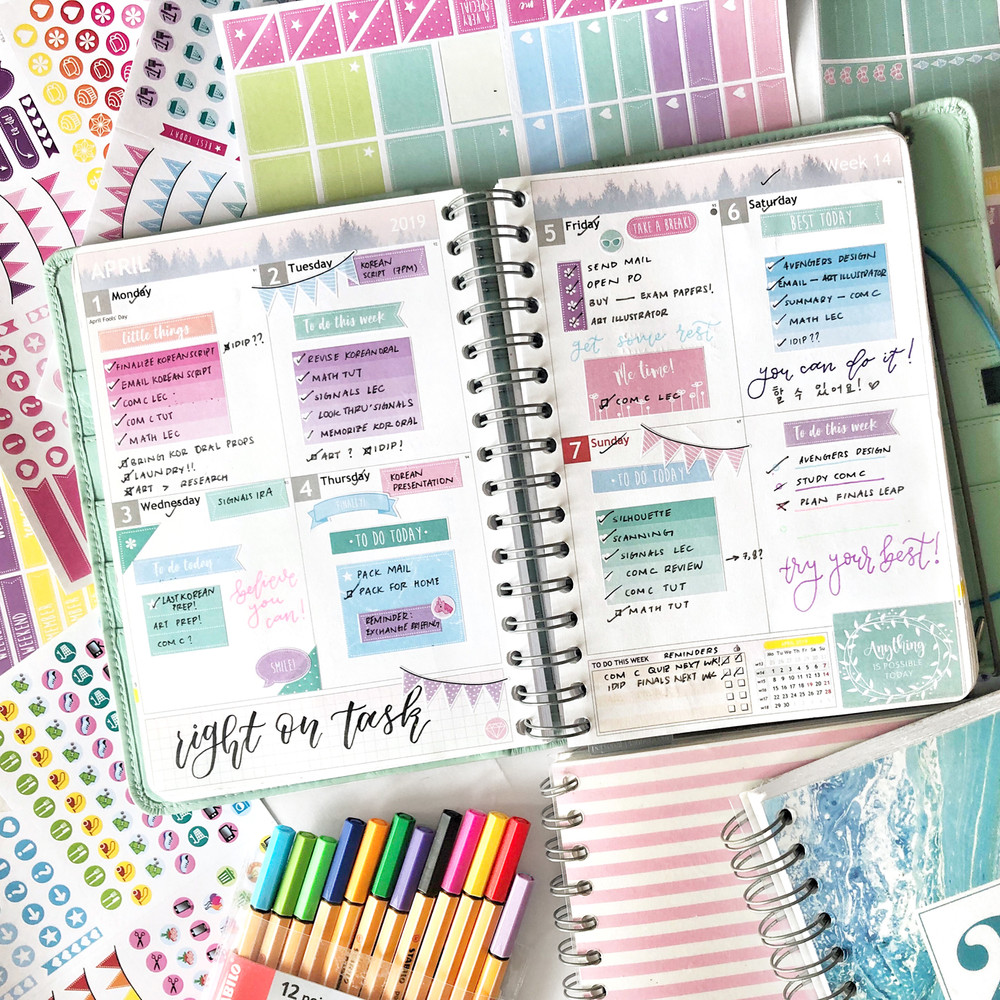 A VERY SPECIAL
me
BEST TODAY
APRIL
2019
1 Monday
April Fools' Day
little things
FINALIZE KOREAN SCRIPT
EMAIL KOREAN SCRIPT
COM C LEC
COM C TUT
MATH LEC
IDIP??
BRING KOR ORAL PROPS
LAUNDRY!!
ART > RESEARCH
2 Tuesday
KOREAN
SCRIPT (7PM)
To do this week
REVISE KOREAN ORAL
MATH TUT
SIGNALS LEC
LOOK THRU' SIGNALS
MEMORIZE KOR ORAL
ART? IDIP?
3 Wednesday
SIGNALS IRA
To do today
LAST KOREAN
PREP!
ART PREP!
COM C?
believe
you
can!
SMILE!
4 Thursday
KOREAN
PRESENTATION
FINALLY!
TO DO TODAY
PACK MAIL
PACK FOR HOME
REMINDER:
EXCHANGE BRIEFING
right on task
Week 14
5 Friday
TAKE A BREAK!
SEND MAIL
OPEN PO
BUY — EXAM PAPERS!
ART ILLUSTRATOR
get some rest
Me time!
COM C LEC
6 Saturday
BEST TODAY
AVENGERS DESIGN
EMAIL — ART ILLUSTRATOR
SUMMARY — COM C
MATH LEC
IDIP??
you can do it!
할 수 있어요!
7 Sunday
TO DO TODAY
SILHOUETTE
SCANNING
SIGNALS LEC
→ 7,8?
COM C REVIEW
COM C TUT
MATH TUT
To do this week
AVENGERS DESIGN
STUDY COM C
PLAN FINALS LEAP
try your best!
TO DO THIS WEEK
REMINDERS
COM C QUIZ NEXT WK!
IDIP FINALS NEXT WK
Mo Tu We Th Fr Sa Su
1 2 3 4 5 6 7
8 9 10 11 12 13 14
15 16 17 18 19 20 21
22 23 24 25 26 27 28
29 30
Anything
IS POSSIBLE
TODAY
WEEKEND
STABILO
12